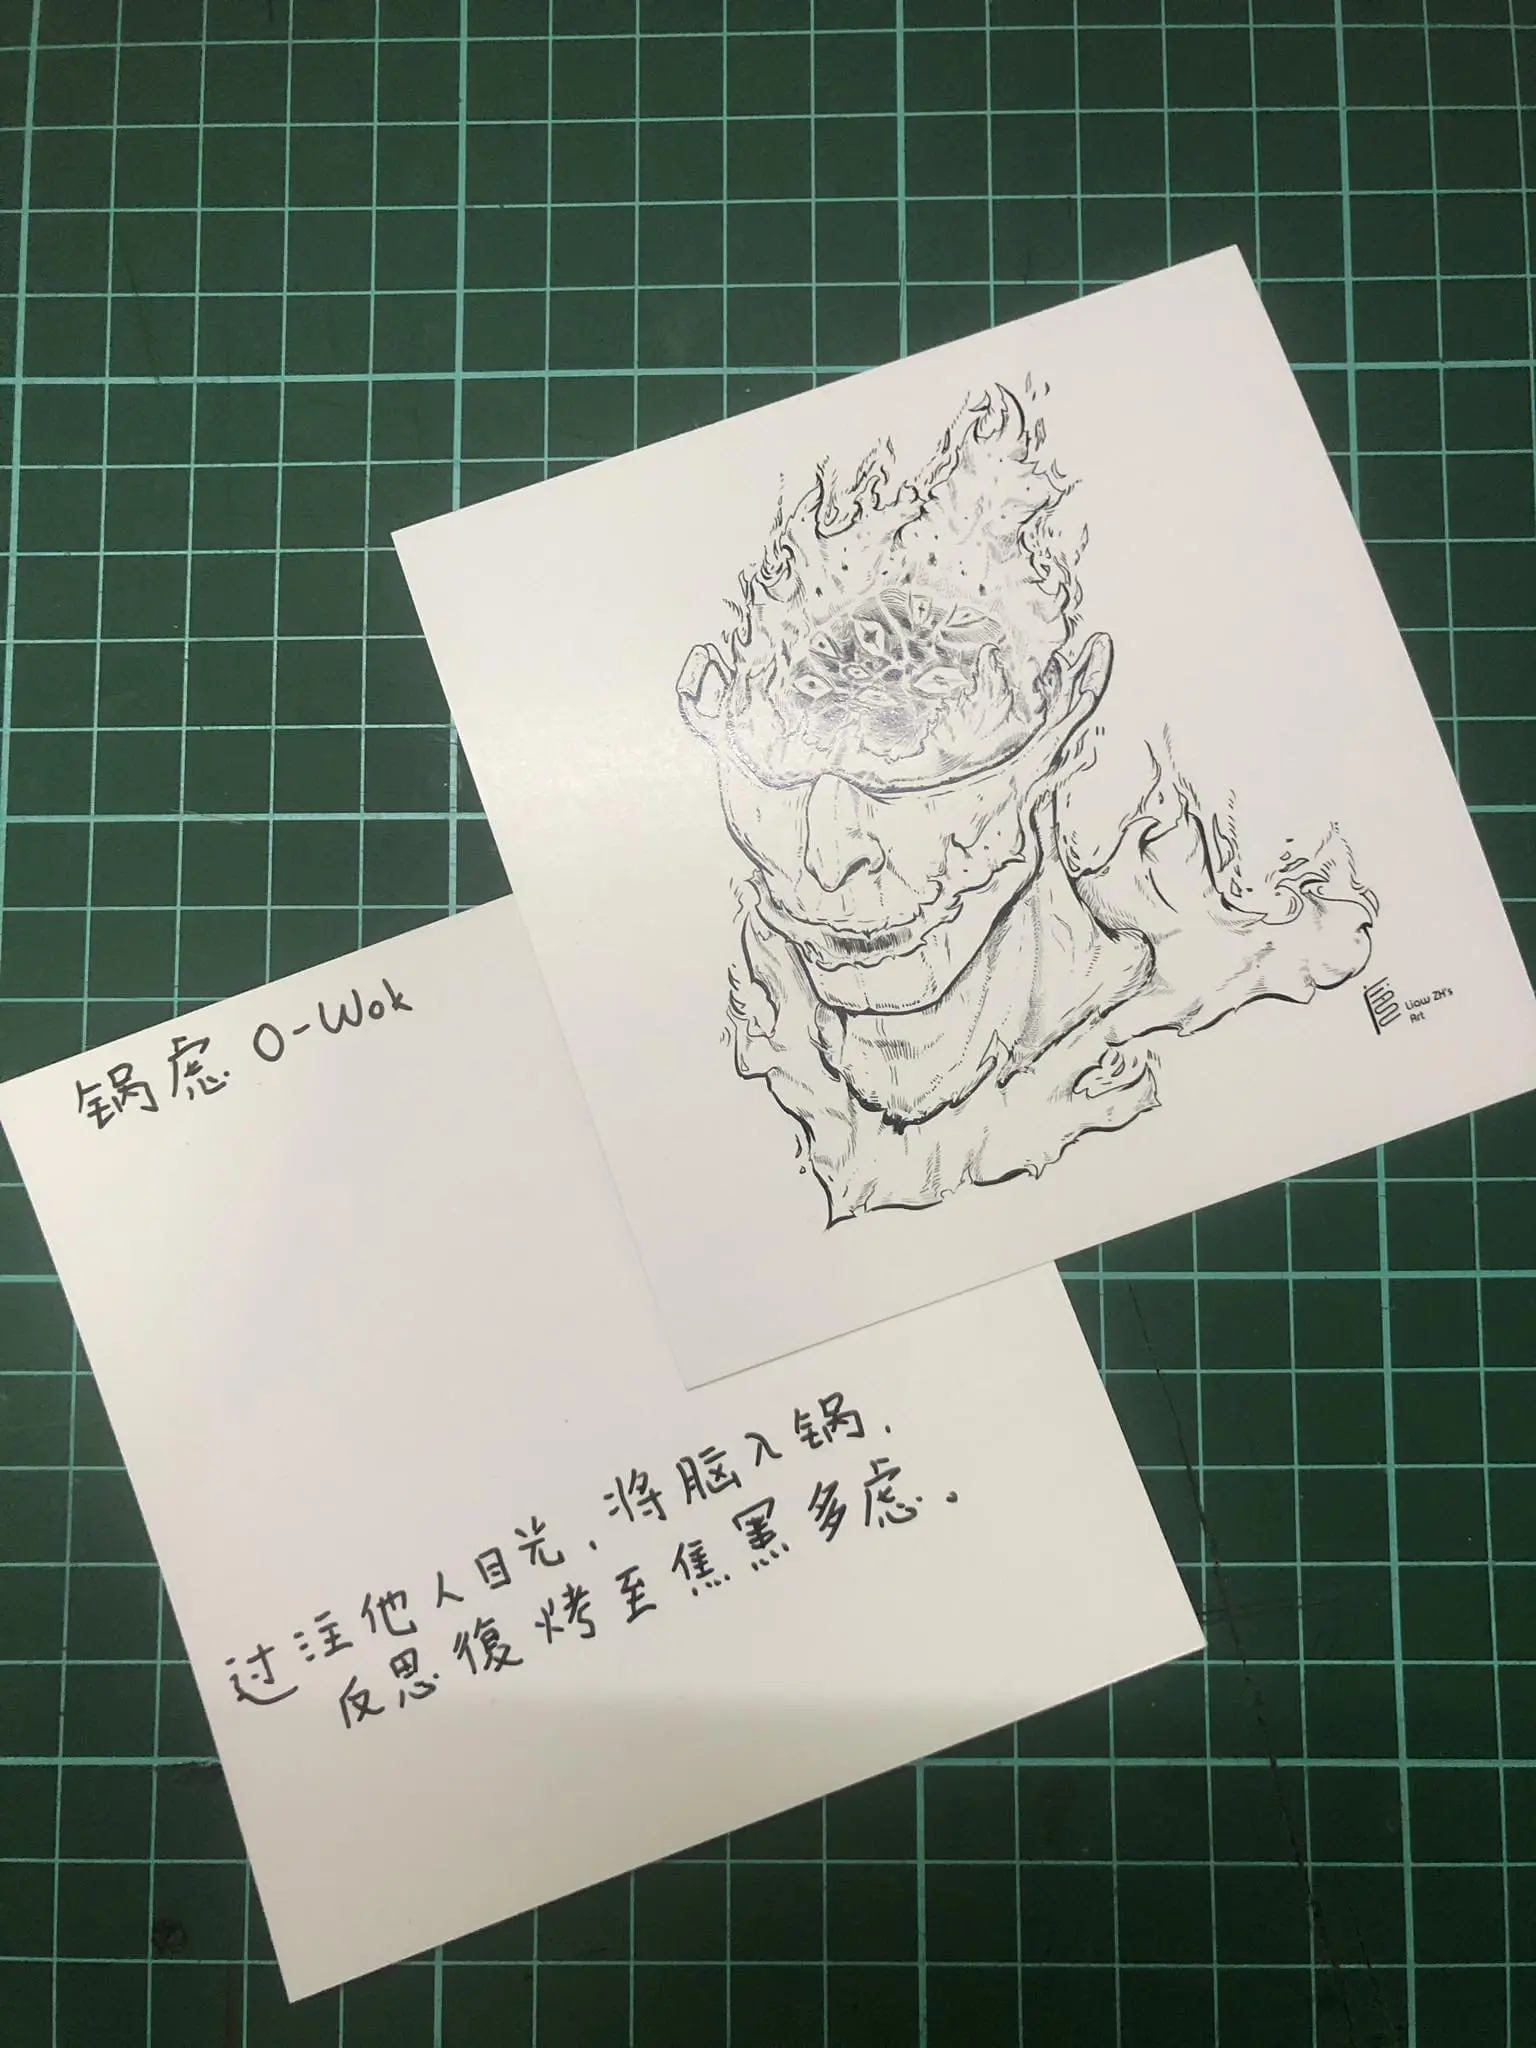 锅虑 O-Wok
过注他人目光,将脑入锅.
反思復烤至焦黑多虑。
LIAOU
Liaw ZH's
Art